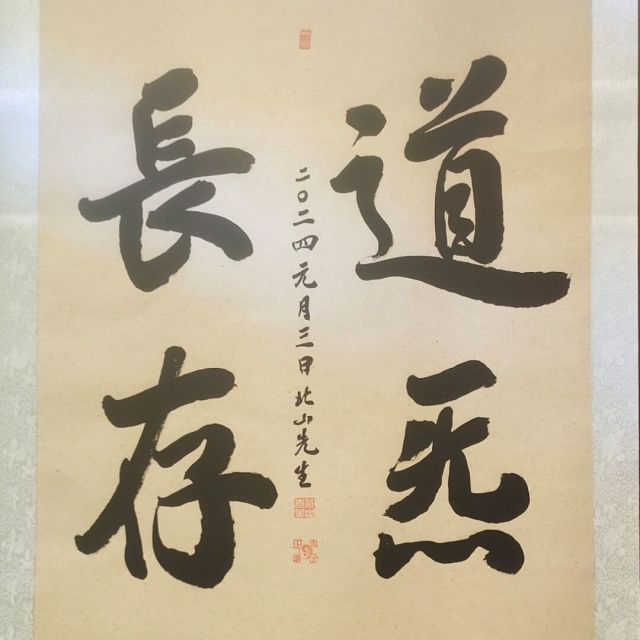 道炁
二〇二四元月三日北山先生
長存